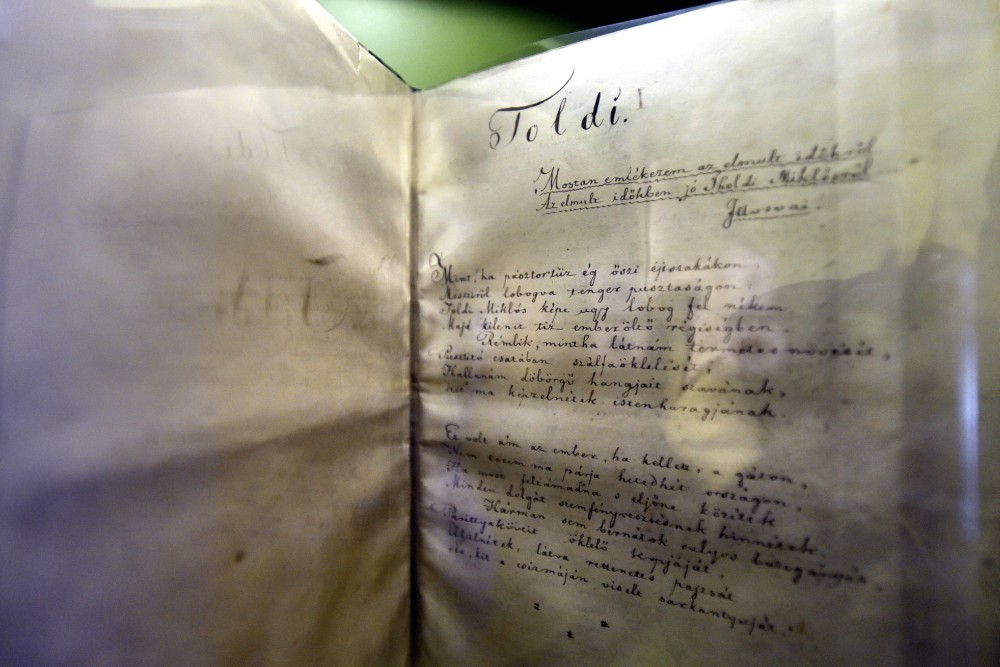 Toldi. I
„Mostan emlékezem az elmult időkről
Az elmult időkben jó Tholdi Miklósról
Ilosvai.
Mint, ha pásztortüz ég őszi éjtszakákon,
Messziről lobogva tenger pusztaságon,
Toldi Miklós képe ugy lobog fel nékem
Majd kilencz tiz emberöltő régiségben.
Rémlik, mintha látnám termetes növését,
Pusztitó csatában szálfaöklelését,
Hallanám döbörgő hangjait szavának,
Kit ma képzelnétek istenharagjának.
Ez volt ám az ember, ha kellett, a gáton,
Nem terem ma párja hetedhét országon,
Ha most feltámadna s eljőne közétek
Minden dolgát szemfényvesztésnek hinnétek.
Hárman sem birnátok sulyos buzogányát,
Parittyaköveit öklelő kopjáját,
Elhülnétek, látva rettenetes pajzsát
's, kit a csizmáján visele sarkantyuját.